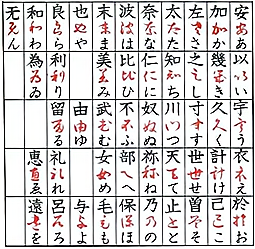 安ああ
以いい
宇うう
衣ええ
於おお
加かか
幾きき
久くく
計けけ
己ここ
左ささ
之しし
寸すす
世せせ
曽そそ
太たた
知ちち
川つつ
天てて
止とと
奈なな
仁にに
奴ぬぬ
祢ねね
乃のの
波はは
比ひひ
不ふふ
部へへ
保ほほ
末まま
美みみ
武むむ
女めめ
毛もも
也やや
由ゆゆ
与よよ
良らら
利りり
留るる
礼れれ
呂ろろ
和わわ
為ゐゐ
恵ゑゑ
遠をを
无んん